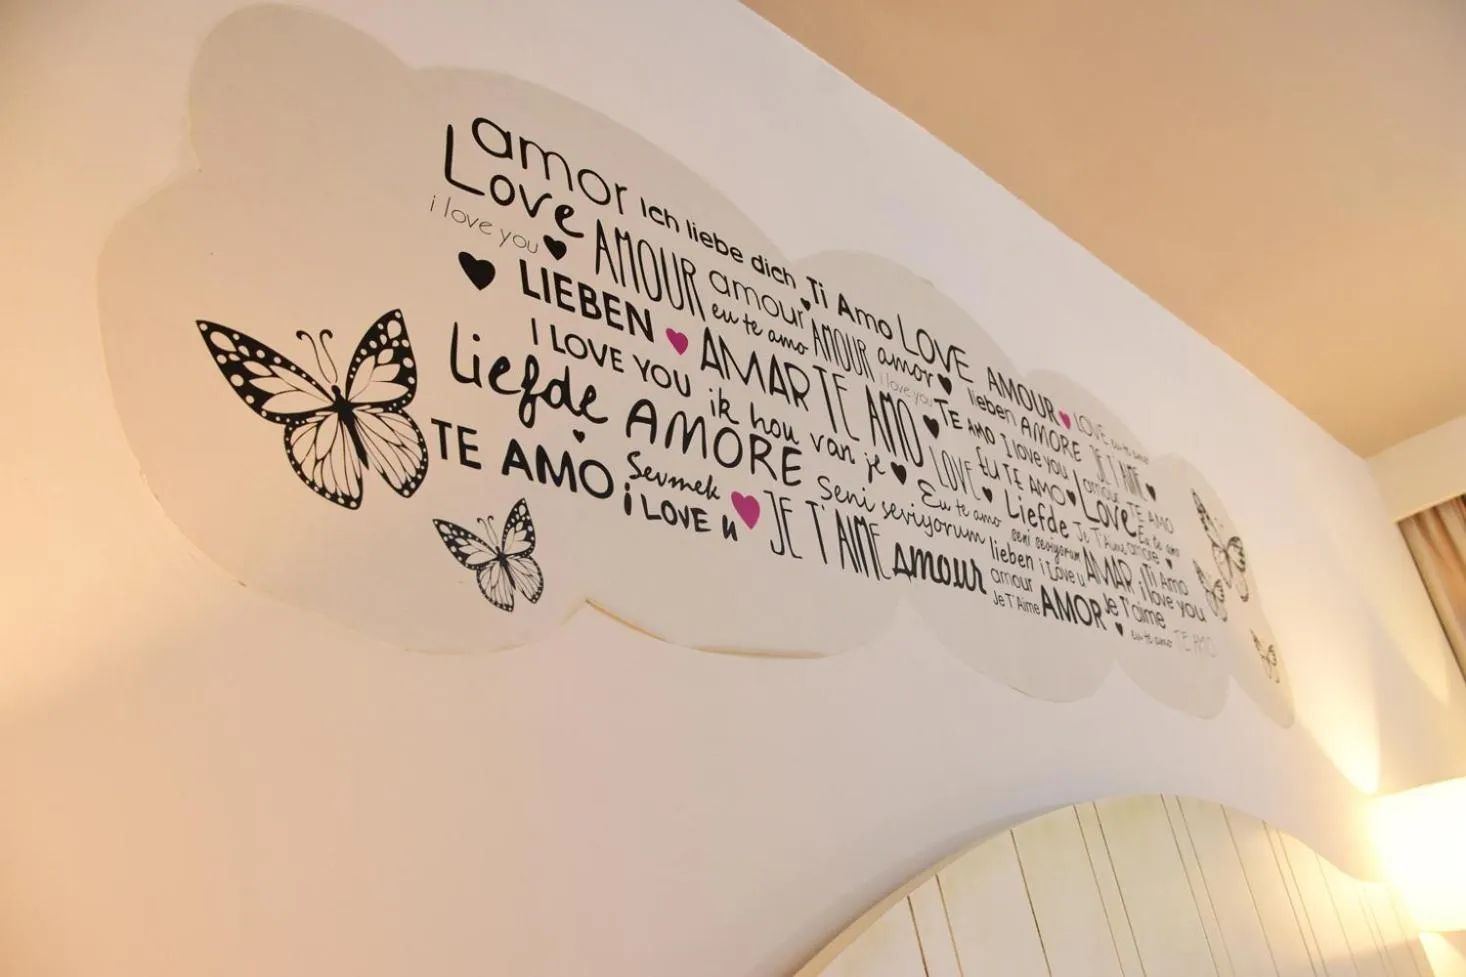 amor Ich liebe dich Ti Amo LOVE AMOUR LOVE eu te amo
Love AMOUR amour AMOUR amor lieben AMORE JE T'AIME
i love you eu te amo i love you TE AMO I love you Lamour TE AMO
LIEBEN AMAR TE AMO LOVE EU TE AMO Love Eu te amo
I LOVE YOU ik hou van je Eu te amo Liefde Je T'Aime amore
Liefde AMORE Seni seviyorum seni seviyorum AMAR Ti Amo
TE AMO Sevmek JE T'AIME lieben i Love u i love you
i LOVE u amour amour Je T'aime
Je T'Aime AMOR eu te amo TE AMO